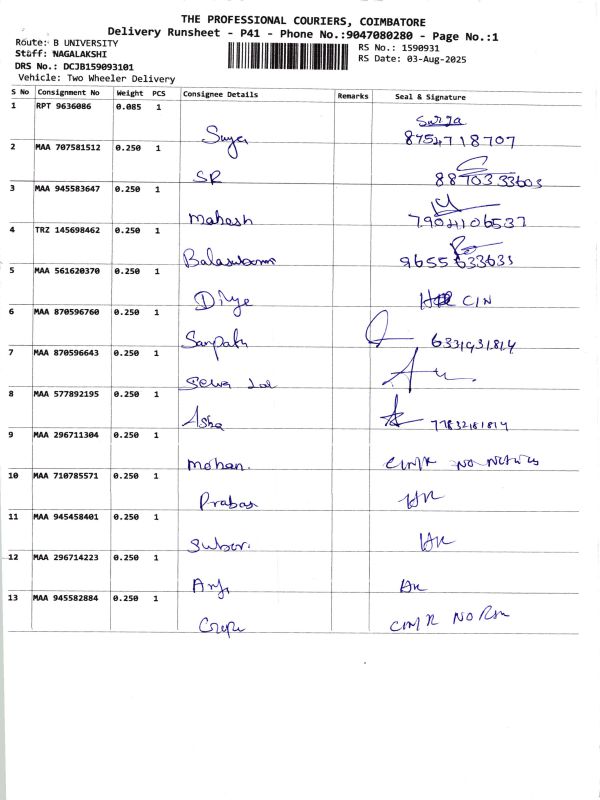 THE PROFESSIONAL COURIERS, COIMBATORE
Delivery Runsheet - P41 - Phone No.:9047080280 - Page No.:1
Route: B UNIVERSITY
Staff: NAGALAKSHI
DRS No.: DCJB159093101
Vehicle: Two Wheeler Delivery
RS No.: 1590931
RS Date: 03-Aug-2025
S No Consignment No Weight PCS Consignee Details Remarks Seal & Signature
1 RPT 9636086 0.085 1
Surya
8754718707
2 MAA 707581512 0.250 1
SR 8870333603
3 MAA 945583647 0.250 1
Mahash 7904106537
4 TRZ 145698462 0.250 1
9655633633
5 MAA 561620370 0.250 1
Divye CIN
6 MAA 870596760 0.250 1
6331931814
7 MAA 870596643 0.250 1
8 MAA 577892195 0.250 1
Asha
9 MAA 296711304 0.250 1
Mohan. NO
10 MAA 710785571 0.250 1
Prabas
11 MAA 945458401 0.250 1
12 MAA 296714223 0.250 1
13 MAA 945582884 0.250 1
NO